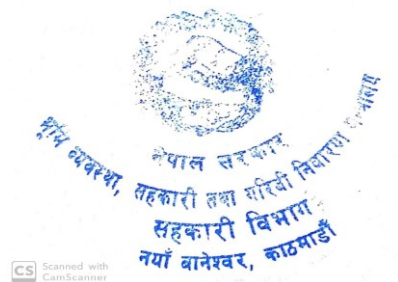 नेपाल सरकार
भूमि व्यवस्था, सहकारी तथा गरिवी निवारण
सहकारी विभाग
नयाँ वानेश्वर, काठमाडौं
CS Scanned with
CamScanner